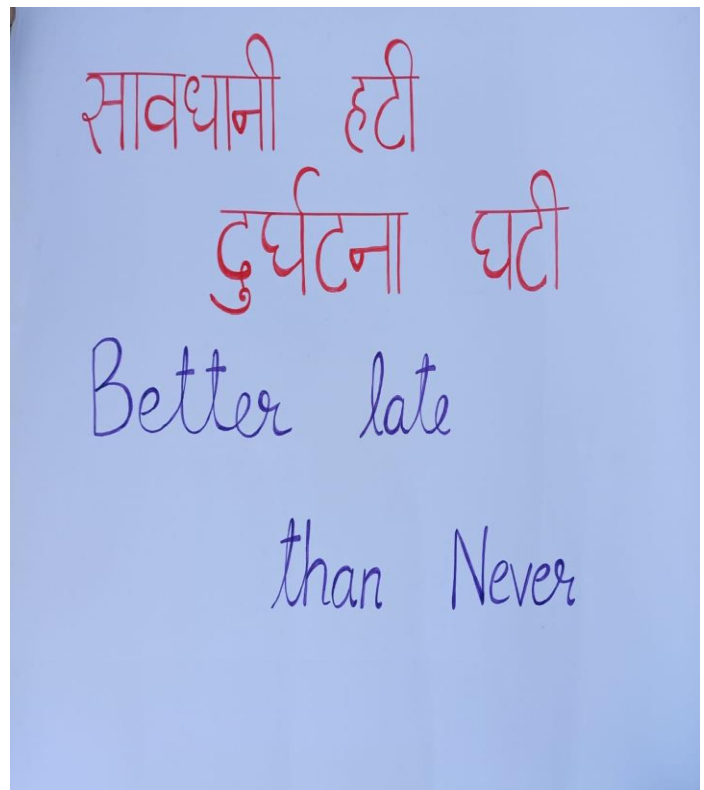 सावधानी हटी
दुर्घटना घटी
Better late
than Never